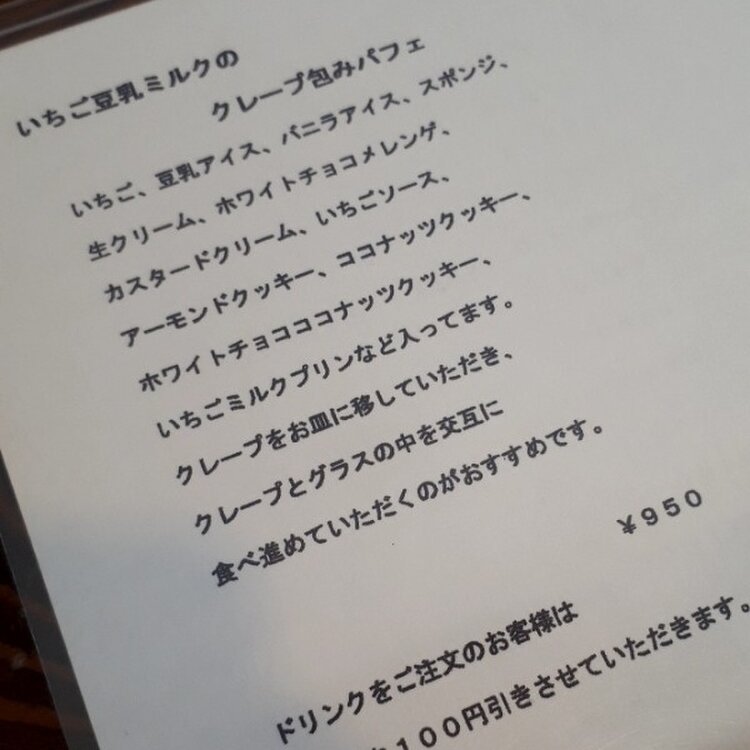 いちご豆乳ミルクの
クレープ包みパフェ
いちご、豆乳アイス、バニラアイス、スポンジ、
生クリーム、ホワイトチョコメレンゲ、
カスタードクリーム、いちごソース、
アーモンドクッキー、ココナッツクッキー、
ホワイトチョコココナッツクッキー、
いちごミルクプリンなど入ってます。
クレープをお皿に移していただき、
クレープとグラスの中を交互に
食べ進めていただくのがおすすめです。
￥９５０
ドリンクをご注文のお客様は
１００円引きさせていただきます。